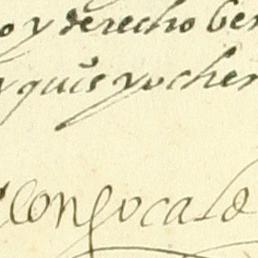 o y derecho ber
y quis yo cher
Alonso cala